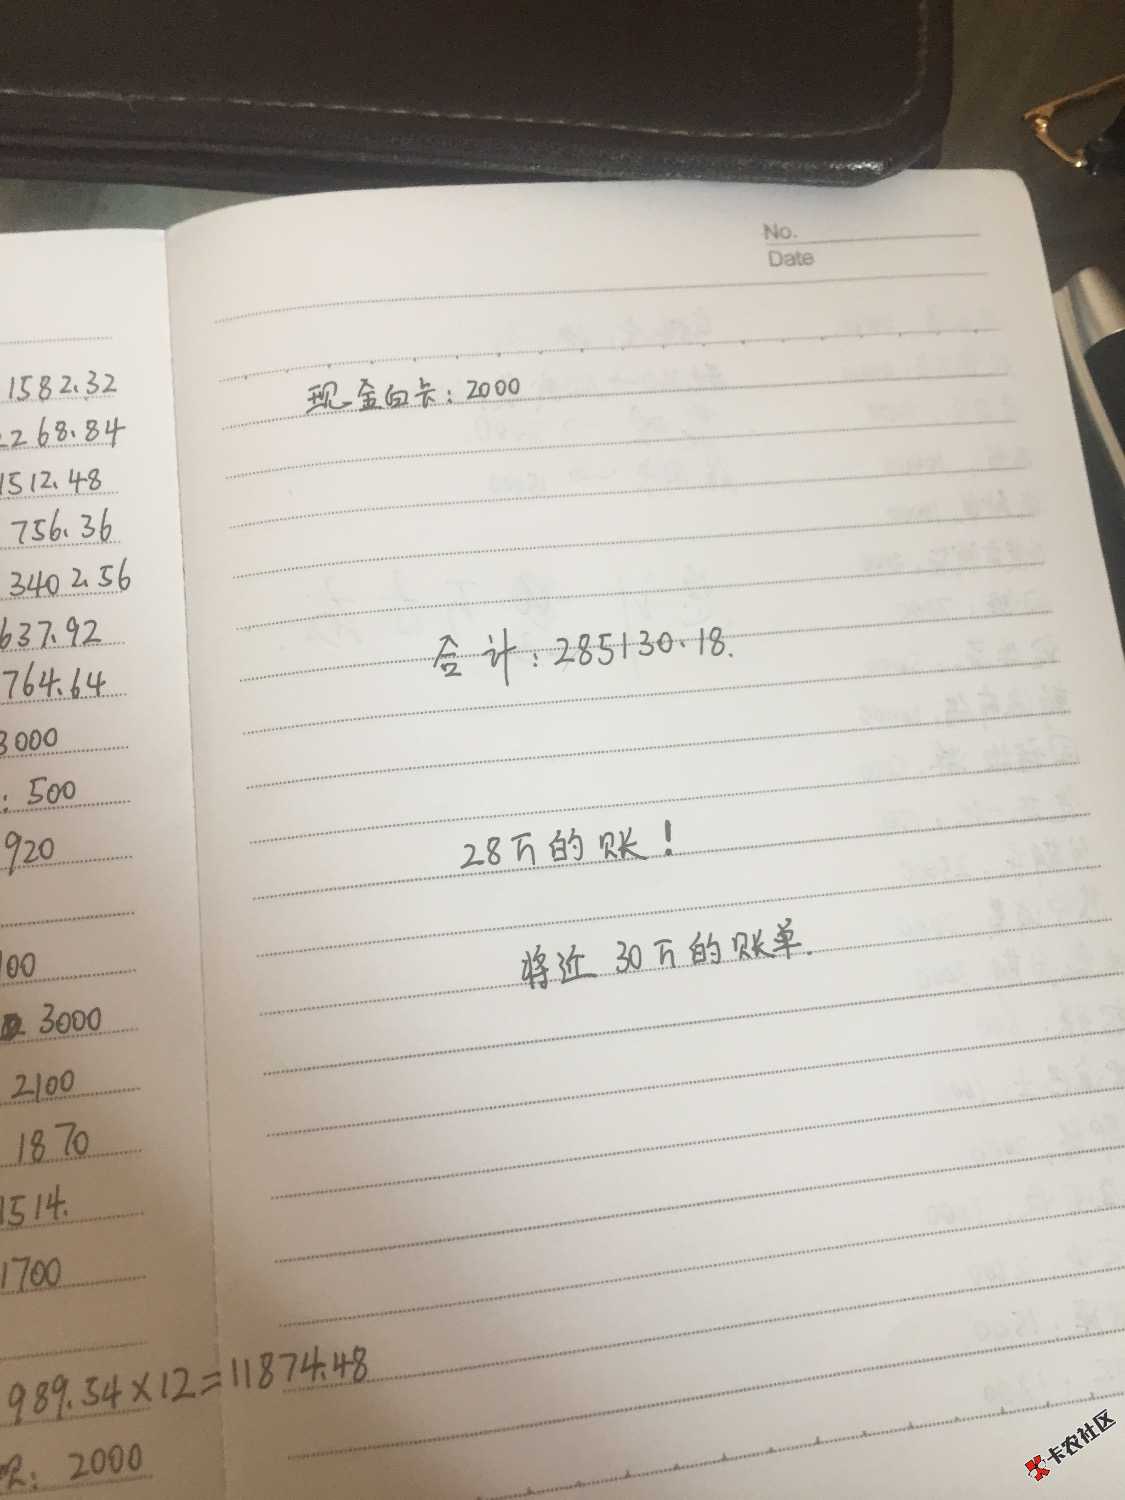 1582.32
2268.84
1512.48
756.36
3402.56
637.92
764.64
3000
: 500
920
100
3000
2100
1870
1514.
1700
989.54×12=11874.48
: 2000
No.
Date
现金白卡: 2000
合计: 285130.18.
28万的账!
将近30万的账单.
卡农社区